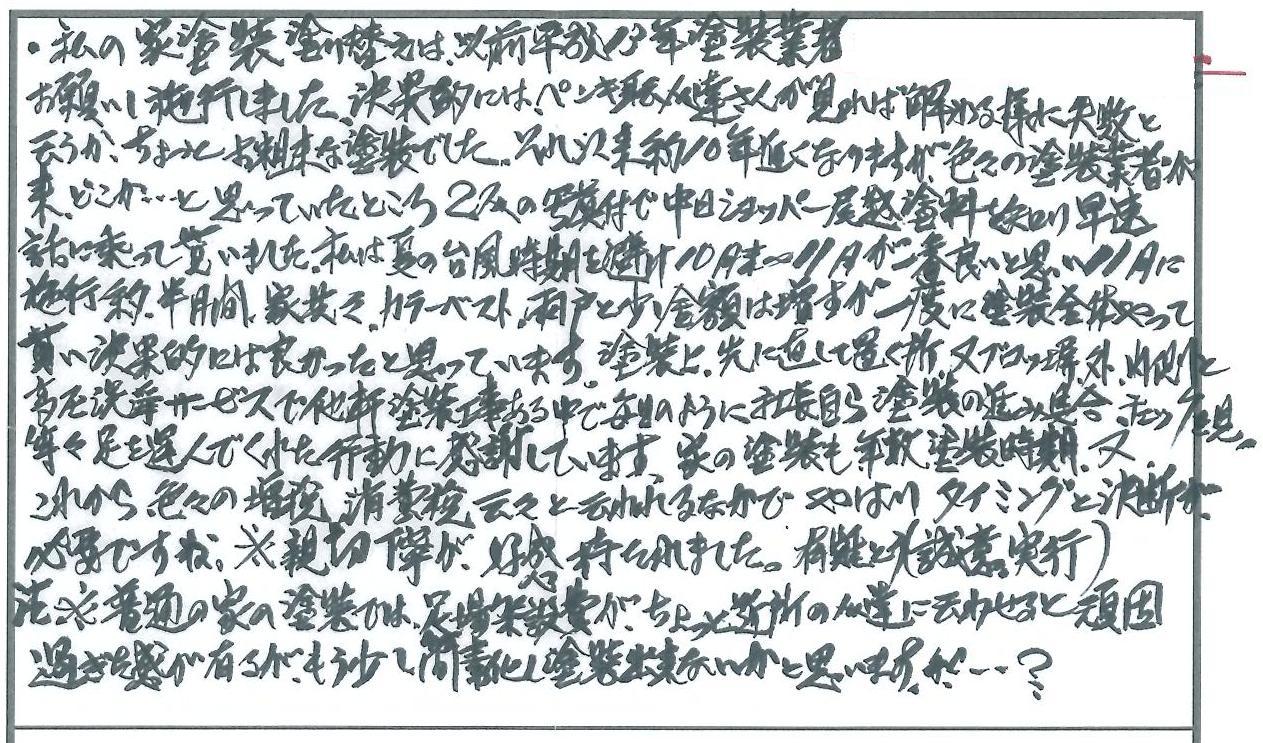 ・私の家塗装塗り替えは、以前平成13年塗装業者
お願いし施行しました。決果的にはペンキ職人達さんが見れば解かる様に失敗と
云うか、ちょっとお粗末な塗装でした。それ以来約10年近くなりますが、色々の塗装業者が
来、どこか…と思っていたところ2人の写真付で中日ショッパー尾越塗料を知り早速
話に乗って貰いました。私は夏の台風時期を避け10月末〜11月が一番良いと思い11月に
施行約半月間、家共々、カラーベスト、雨戸と少し金額は増すが一度に塗装全体やって
貰い決果的には良かったと思っています。塗装上、先に直して置く所、又ブロック塀、外、内側と
高圧洗浄サービスで他軒塗装工事ある中で毎日のように社長自ら塗装の進み具合チェックを見、
等々足を運んでくれた行動に感謝しています。家の塗装も年数、塗装時期、又、
これから色々の増税、消費税云々と云われるなかで やはり タイミングと決断が、
必要ですね。※親切丁寧が、好感持たれました。有難とう(誠意、実行)
注※普通の家の塗装では、足場架設費が、ちょっと近所の人達に云わせると頑固
過ぎた感が有るが、もう少し簡素化し塗装出来ないかと思いますが…?